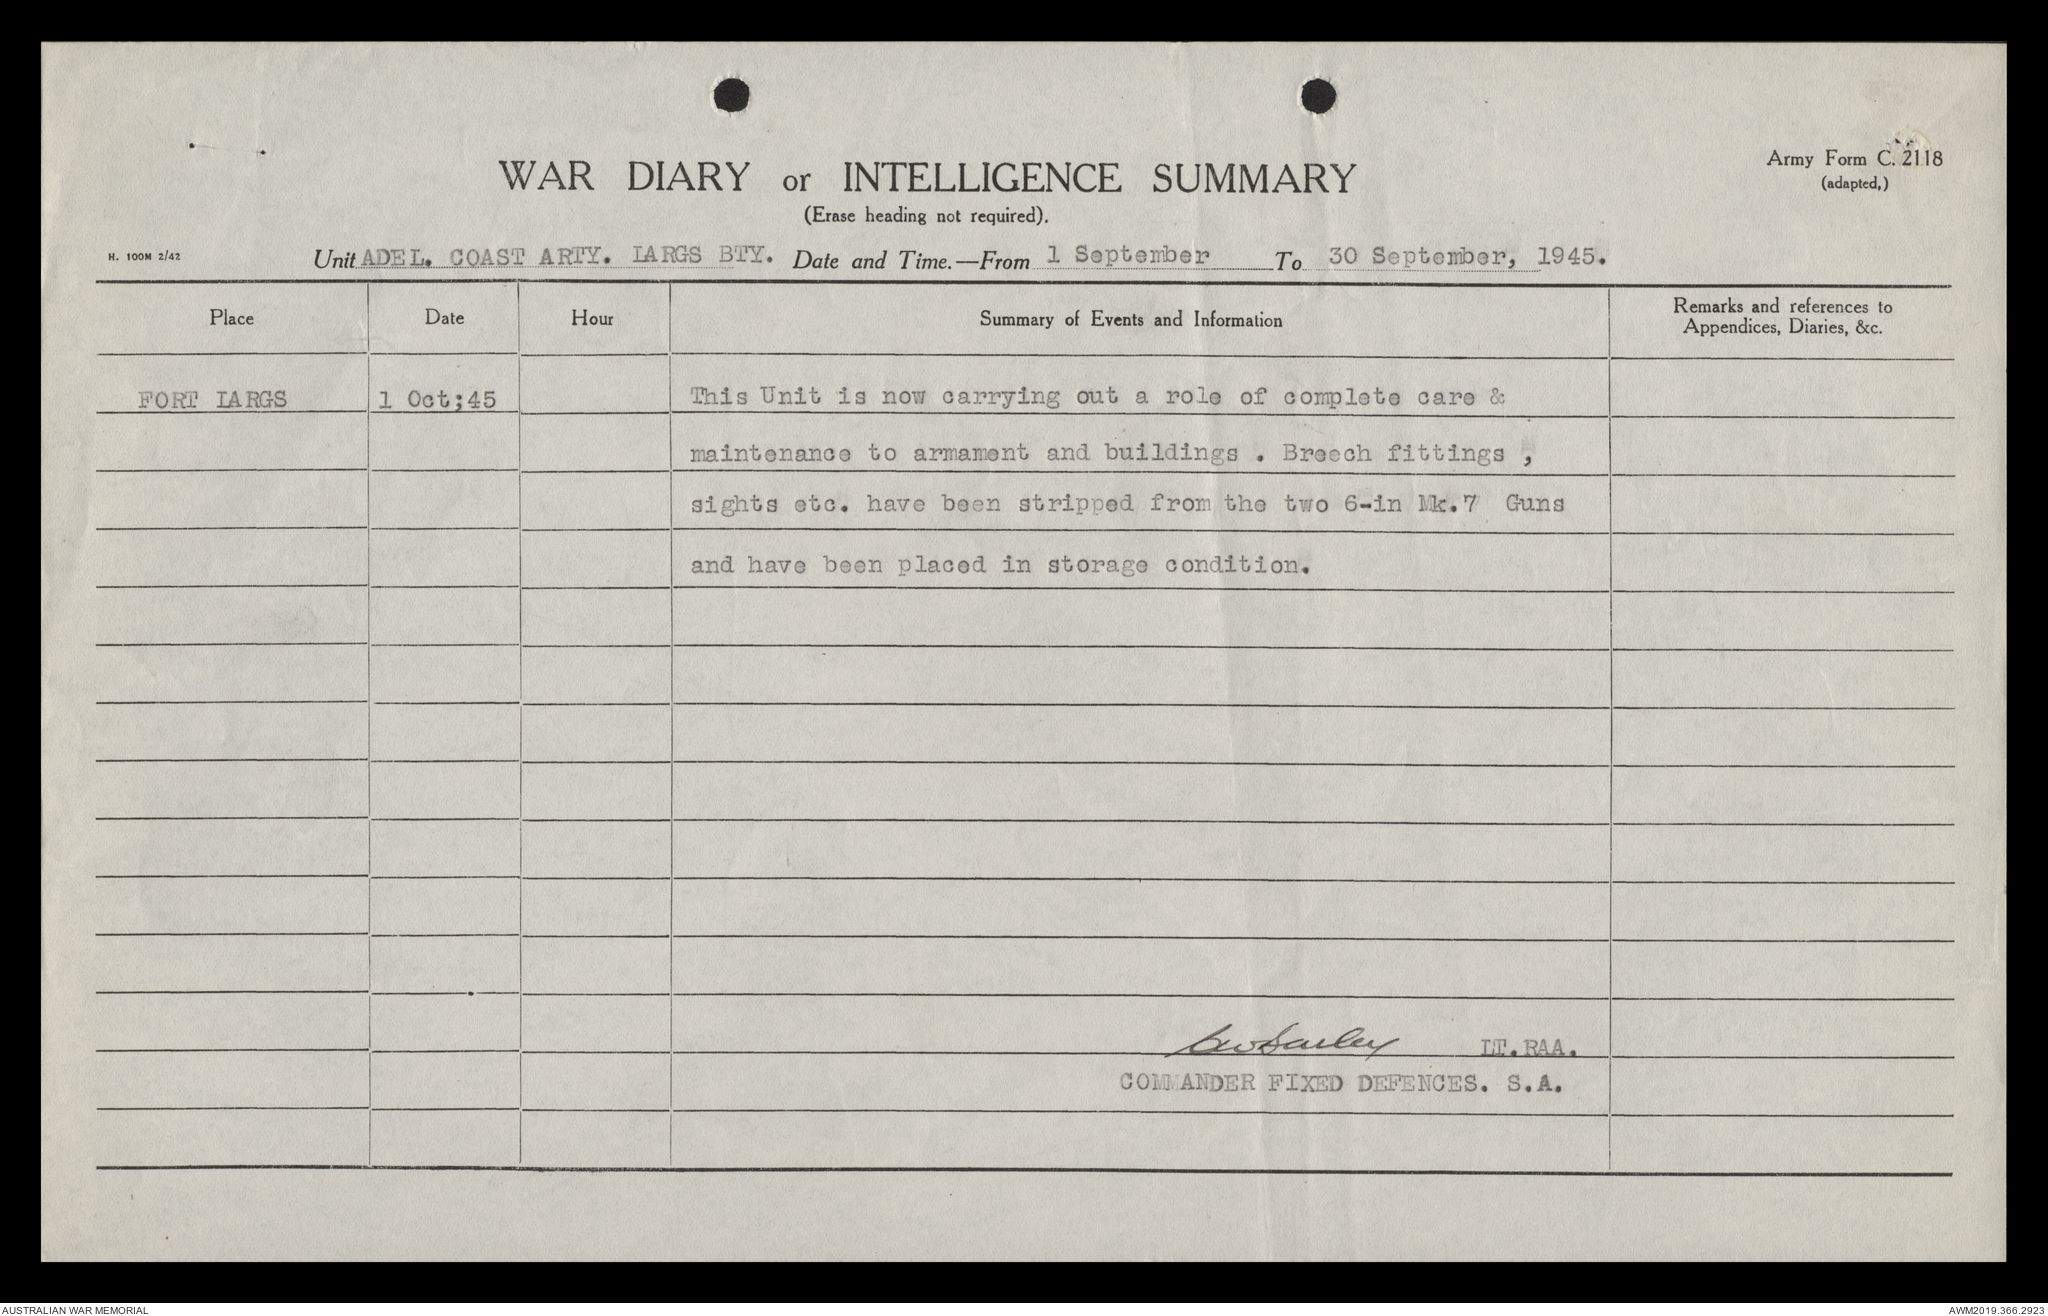 Army Form C. 2118
(adapted,)
WAR DIARY or INTELLIGENCE SUMMARY
(Erase heading not required).
H. 100M 2/42
Unit ADEL. COAST ARTY. LARGS BTY. Date and Time.—From 1 September To 30 September, 1945.
Place Date Hour Summary of Events and Information Remarks and references to
Appendices, Diaries, &c.
FORT LARGS 1 Oct;45 This Unit is now carrying out a role of complete care &
maintenance to armament and buildings . Breech fittings ,
sights etc. have been stripped from the two 6-in Mk.7 Guns
and have been placed in storage condition.
LT.RAA.
COMMANDER FIXED DEFENCES. S.A.
AUSTRALIAN WAR MEMORIAL
AWM2019.366.2923